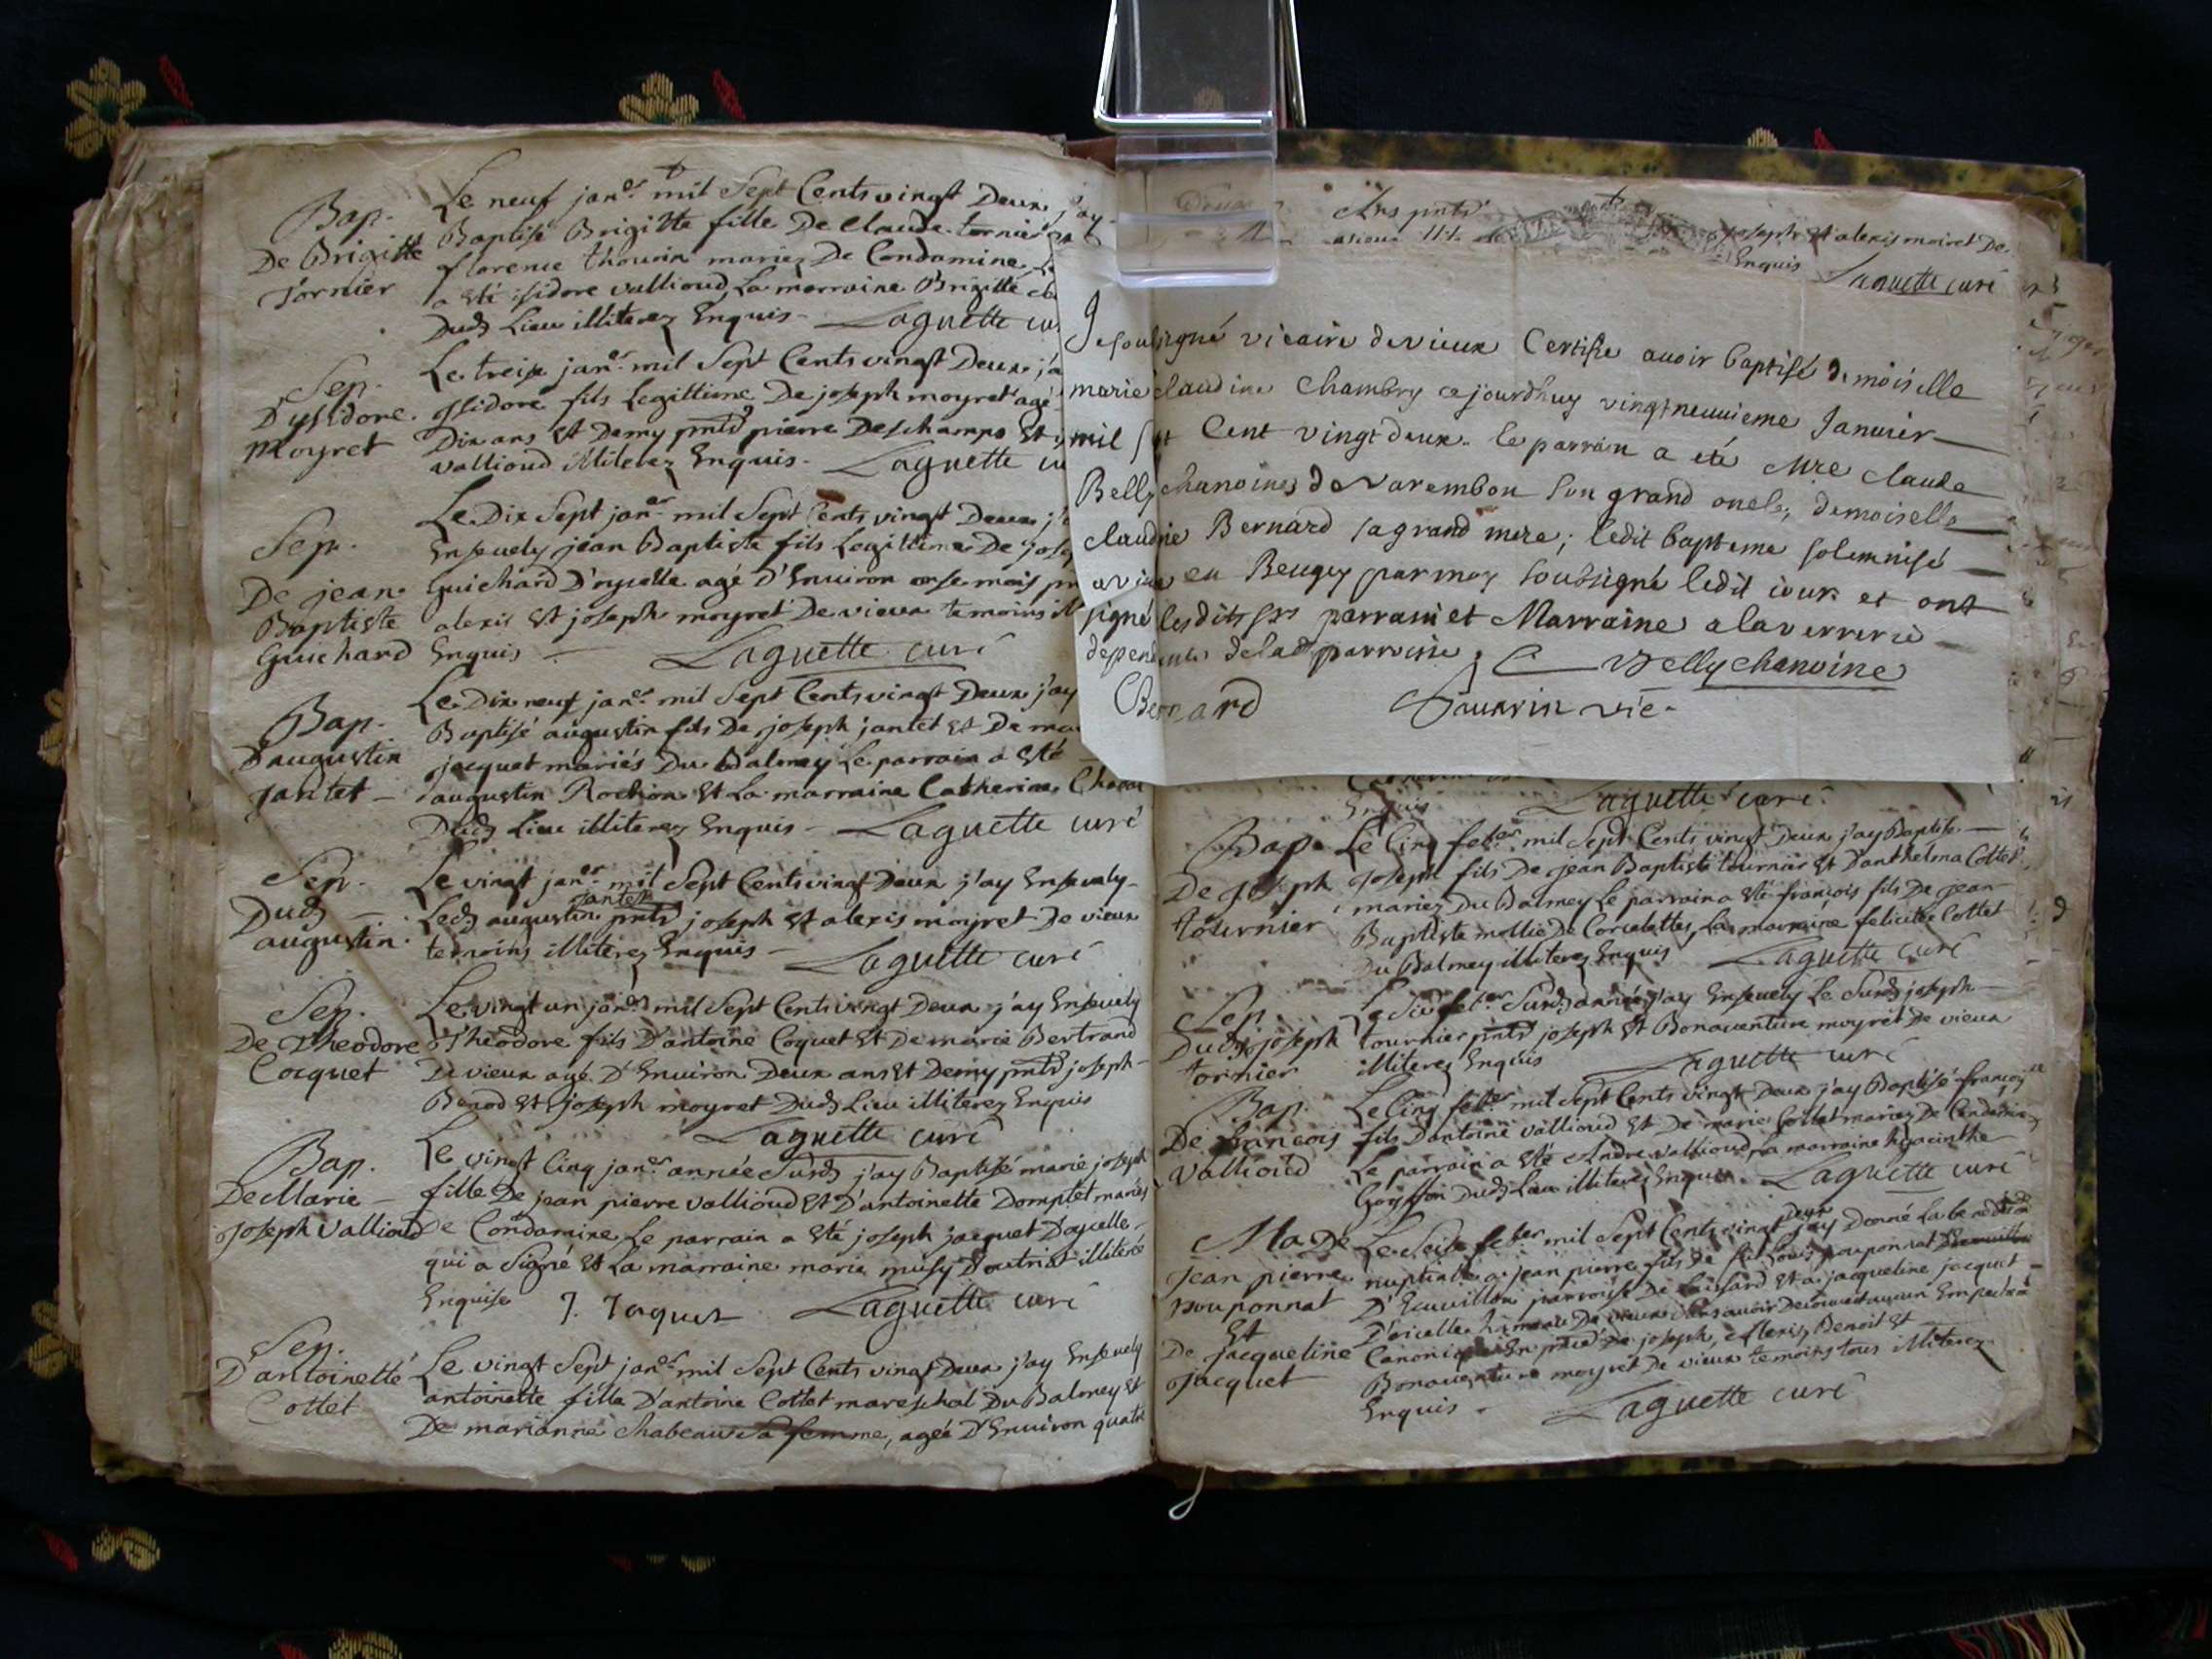 Bap.
De Brigitte
Tornier
Le neuf jan.er mil Sept Cents vingt Deux j'ay
Baptisé Brigitte fille De Claude tornier Et
florence thouvin mariez De Condamine Le
a Eté isidore vallioud La marraine Brigitte
Dud Lieu illiterez Enquis - Laguette cu
Sep.
D'ysidore
Moyret
Le treize jan.er mil Sept Cents vingt Deux j'a
Isidore fils Legittime De joseph moyret agé
Dix ans Et Demy pnts pierre Deschamps Et
vallioud illiterez Enquis - Laguette cu
Sep.
De jean
Baptiste
Guichard
Le Dix Sept jan.er mil Sept Cents vingt Deux j'a
Ensevely jean Baptiste fils Legittime De jose
guichard D'oycelle agé D'Environ onse mois pn
alexis Et joseph moyret De vieux temoins
Enquis - Laguette curé
Bap.
D'augustin
Jantet -
Le Dix neuf jan.er mil Sept Cents vingt Deux j'ay
Baptisé augustin fils De joseph jantet Et De ma
jacquet mariés Du Balmey Le parrain a Eté
augustin Rochon Et La marraine Catherine
Dud Lieu illiterez Enquis - Laguette curé
Sep.
Dud -
augustin.
Le vingt jan.er mil Sept Cents vingt Deux j'ay Ensevely
Led augustin jantet pnts joseph Et alexis moyret De vieux
temoins illiterez Enquis - Laguette curé
Sep.
De Theodore
Cocquet
Le vingt un jan.er mil Sept Cents vingt Deux j'ay Ensevely
Theodore fils D'antoine Coquet Et De marie Bertrand
De vieux agé D'Environ Deux ans Et Demy pnts joseph -
Benod Et joseph moyret Dud Lieu illiterez Enquis
Laguette curé
Bap.
De Marie -
Joseph Vallioud
Le vingt Cinq jan.er année Susd j'ay Baptisé marie joseph
fille De jean pierre vallioud Et D'antoinette Domptet mariés
De Condamine Le parrain a Eté joseph jacquet D'oycelle
qui a Signé Et La marraine marie musy D'outriat illiterée
Enquise J. Jaquet Laguette curé
Sep.
D'antoinette
Cottet
Le vingt Sept jan.er mil Sept Cents vingt Deux j'ay Ensevely
antoinette fille D'antoine Cottet mareschal Du Balmey Et
De marianne Chabeau Sa femme, agée D'Environ quatre
ans pnts joseph Et alexis moiret De
vieux illi Enquis Laguette curé
Je soubsigné vicaire de vieux Certifie avoir baptisé demoiselle
marie claudine Chambry cejourdhuy vingtneuvieme Janvier
mil sept Cent vingt deux. le parrain a eté Mre claude
Belly chanoines de Varembon son grand oncle, demoiselle
claudine Bernard sa grand mere; ledit bapteme solemnisé
a vieu en Beugey par moy soubsigné ledit iour et ont
signé lesdits srs parrain et Marraine a la verrerie
dependente de lad parroisse, Belly chanoine
Bernard vic.
Enquis Laguette curé
Bap.
De joseph
tournier
Le Cinq feb.er mil Sept Cents vingt Deux j'ay Baptisé
joseph fils De jean Baptiste tournier Et D'anthelma Cottet
mariez Du Balmey Le parrain a Eté françois fils De jean
Baptiste mollie De Corcelettes, La marraine felicitée Cottet
Du Balmey illiterez Enquis Laguette curé
Sep.
Dud joseph
tornier
Le Six feb.er Susd année j'ay Ensevely Le Susd joseph
tournier pnts joseph Et Bonaventure moyret De vieux
illiterez Enquis Laguette curé
Bap.
De françois
Vallioud
Le Cinq feb.er mil Sept Cents vingt Deux j'ay Baptisé françois
fils D'antoine vallioud Et De marie Cottet mariez De Condamine
Le parrain a Eté Andre vallioud, La marraine hyacinthe
Dud Lieu illiterez Enquis. Laguette curé
Ma. De
Jean pierre
pouponnat
Et
De Jacqueline
Jacquet
Le Seise feb.er mil Sept Cents vingt Deux j'ay Donné La benediction
nuptiale a jean pierre fils De feu Louis pouponnat
D'Ecuvillon parroisse De Leissard Et a jacqueline jacquet
D'oicelle hameau De vieux sans avoir Decouvert aucun Empechem
Canonique En pnce De joseph, Alexis, Benoit Et
Bonaventure moyret De vieux temoins tous illiterez
Enquis - Laguette curé